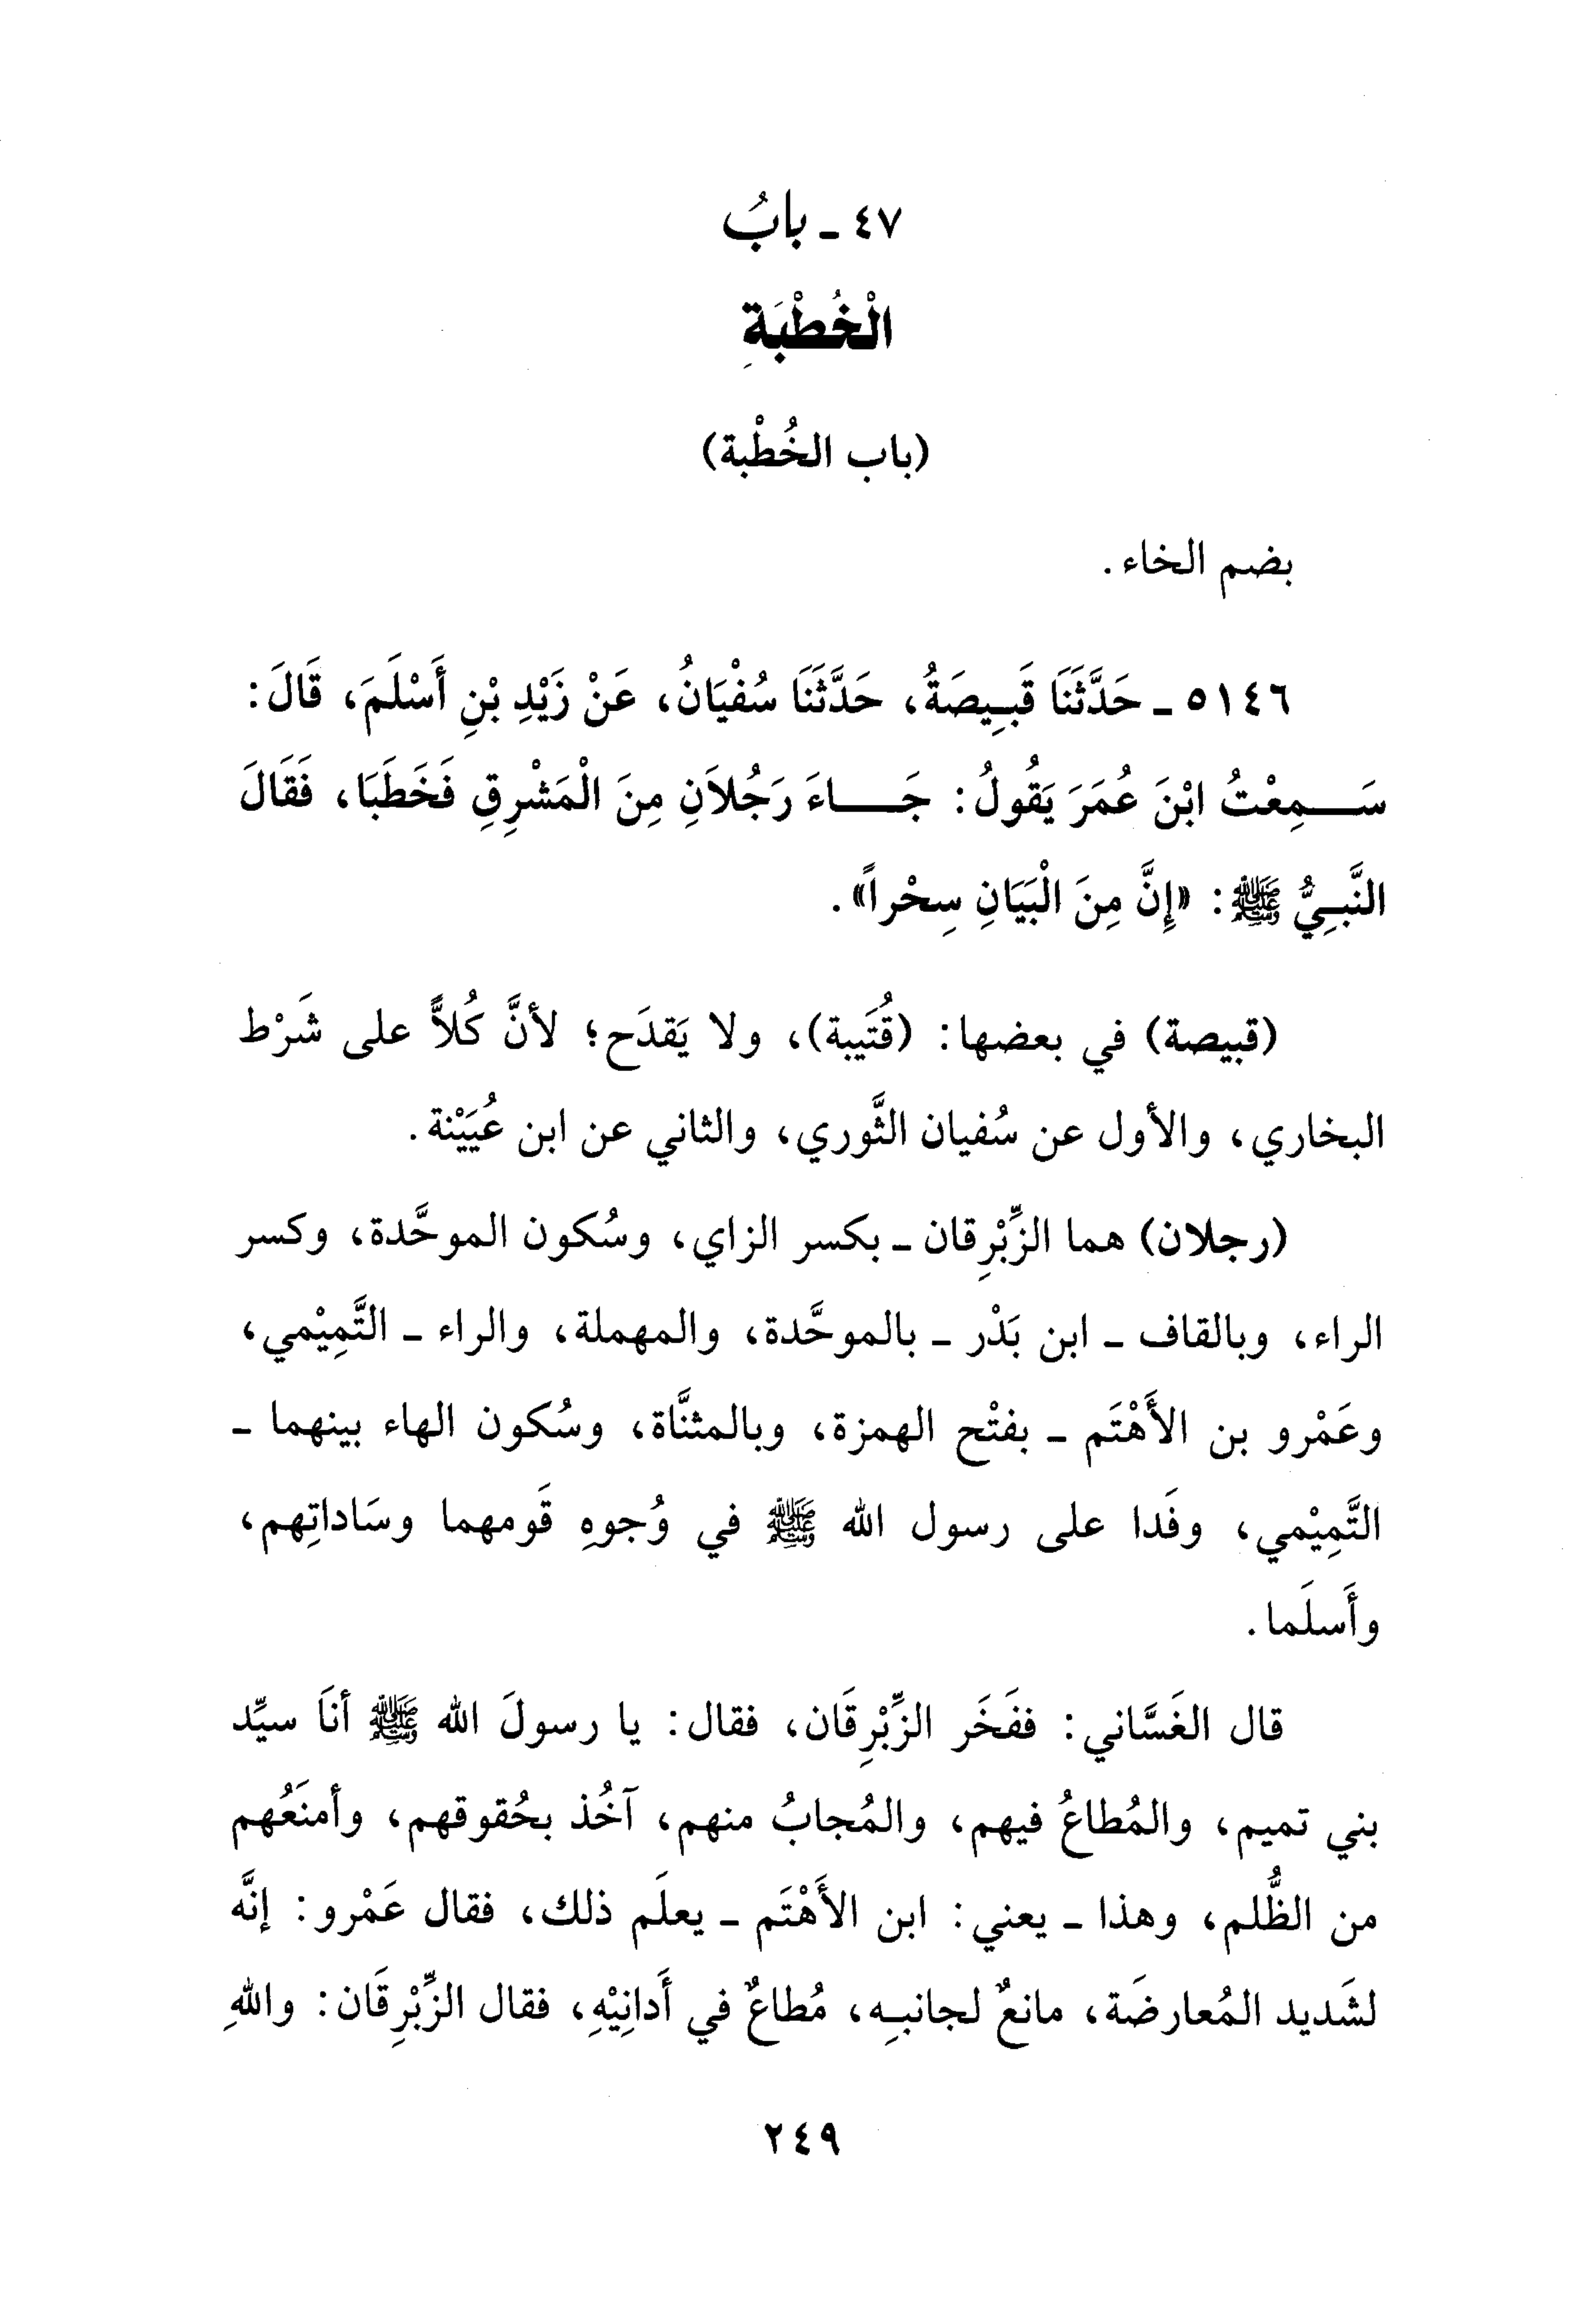 ٤٧ - بابُ
الْخُطْبَةِ
(باب الخُطْبة)
بضم الخاء.
٥١٤٦ - حَدَّثَنَا قَبِيصَةُ، حَدَّثَنَا سُفْيَانُ، عَنْ زَيْدِ بْنِ أَسْلَمَ، قَالَ:
سَمِعْتُ ابْنَ عُمَرَ يَقُولُ: جَاءَ رَجُلاَنِ مِنَ الْمَشْرِقِ فَخَطَبَا، فَقَالَ
النَّبِيُّ ﷺ: «إِنَّ مِنَ الْبَيَانِ سِحْراً».
(قبيصة) في بعضها: (قُتَيبة)، ولا يَقدَح؛ لأنَّ كُلاًّ على شَرْط
البخاري، والأول عن سُفيان الثَّوري، والثاني عن ابن عُيَيْنة.
(رجلان) هما الزِّبْرِقان - بكسر الزاي، وسُكون الموحَّدة، وكسر
الراء، وبالقاف - ابن بَدْر - بالموحَّدة، والمهملة، والراء - التَّمِيْمي،
وعَمْرو بن الأَهْتَم - بفتْح الهمزة، وبالمثنَّاة، وسُكون الهاء بينهما -
التَّمِيْمي، وفَدا على رسول الله ﷺ في وُجوهِ قَومهما وسَاداتِهم،
وأَسلَما.
قال الغَسَّاني: ففَخَر الزِّبْرِقَان، فقال: يا رسولَ الله ﷺ أنَا سيِّد
بني تميم، والمُطاعُ فيهم، والمُجابُ منهم، آخُذ بحُقوقهم، وأمنَعُهم
من الظُّلم، وهذا - يعني: ابن الأَهْتَم - يعلَم ذلك، فقال عَمْرو: إنَّه
لشَديد المُعارضَة، مانعٌ لجانبِه، مُطاعٌ في أَدانِيْهِ، فقال الزِّبْرِقَان: واللهِ
٢٤٩